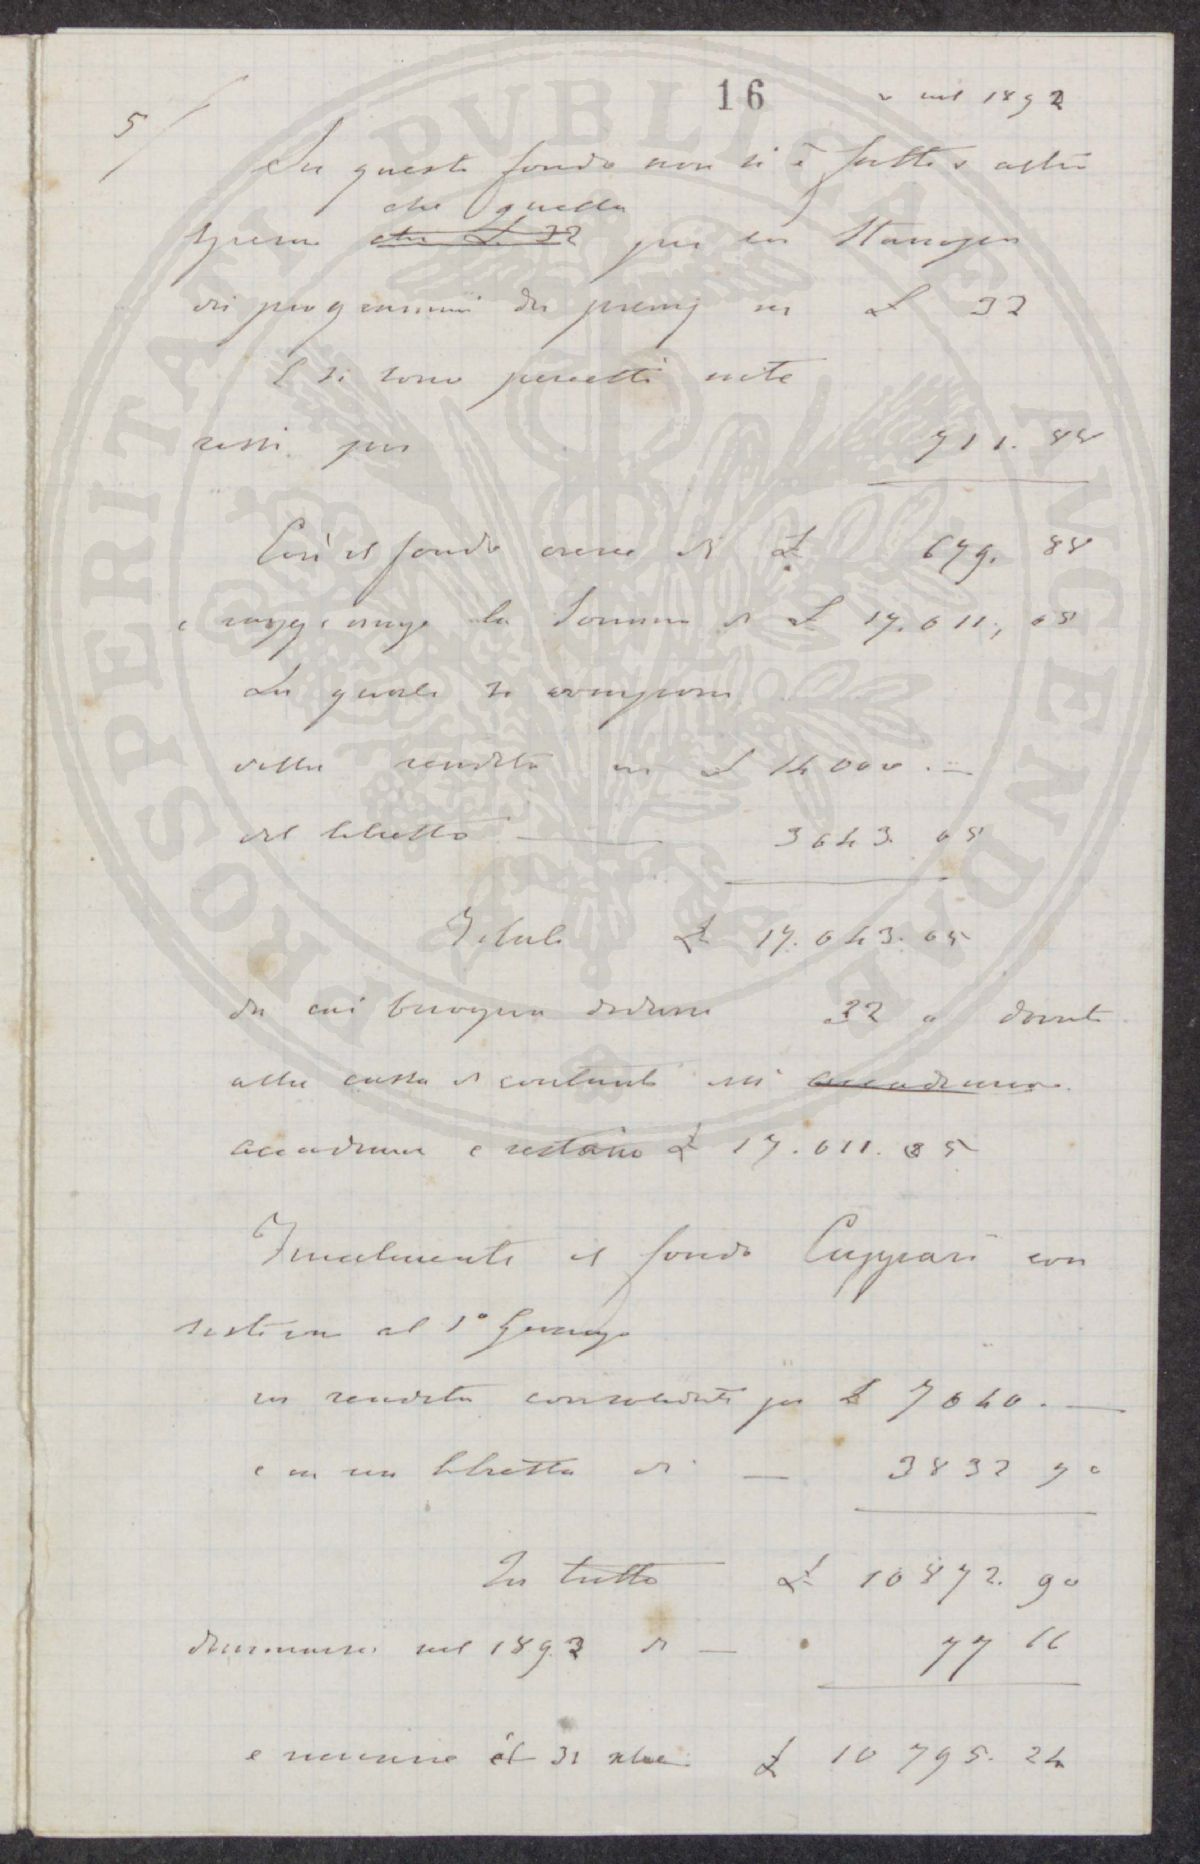 16 e nel 1892
5
Su questo fondo non si è fatta altra
che quella
spesa che L 32 per la stampa
dei programmi dei premj in L 32
E si sono percetti inte
ressi per 711. 88
Così il fondo cresce di L 679. 88
e raggiunge la somma di L 17.011, 05
La quale si compone
della rendita in L 14000. —
del libretto — 3043. 05
Totale L 17.043. 05
da cui bisogna dedurre 32 a dovute
alla cassa di contanti accademia
accademica e restano L 17.011. 05
Finalmente il fondo Cuppari con
sisteva al 1° Gennajo
in rendita consolidata per L 7040. —
e in un libretto di — 3832 90
In tutto L 10872. 90
diminuisce nel 1892 di — 77 66
e rimane al 31 xbre L 10795. 24
PROSPERITATI PVBLICAE AVGENDAE